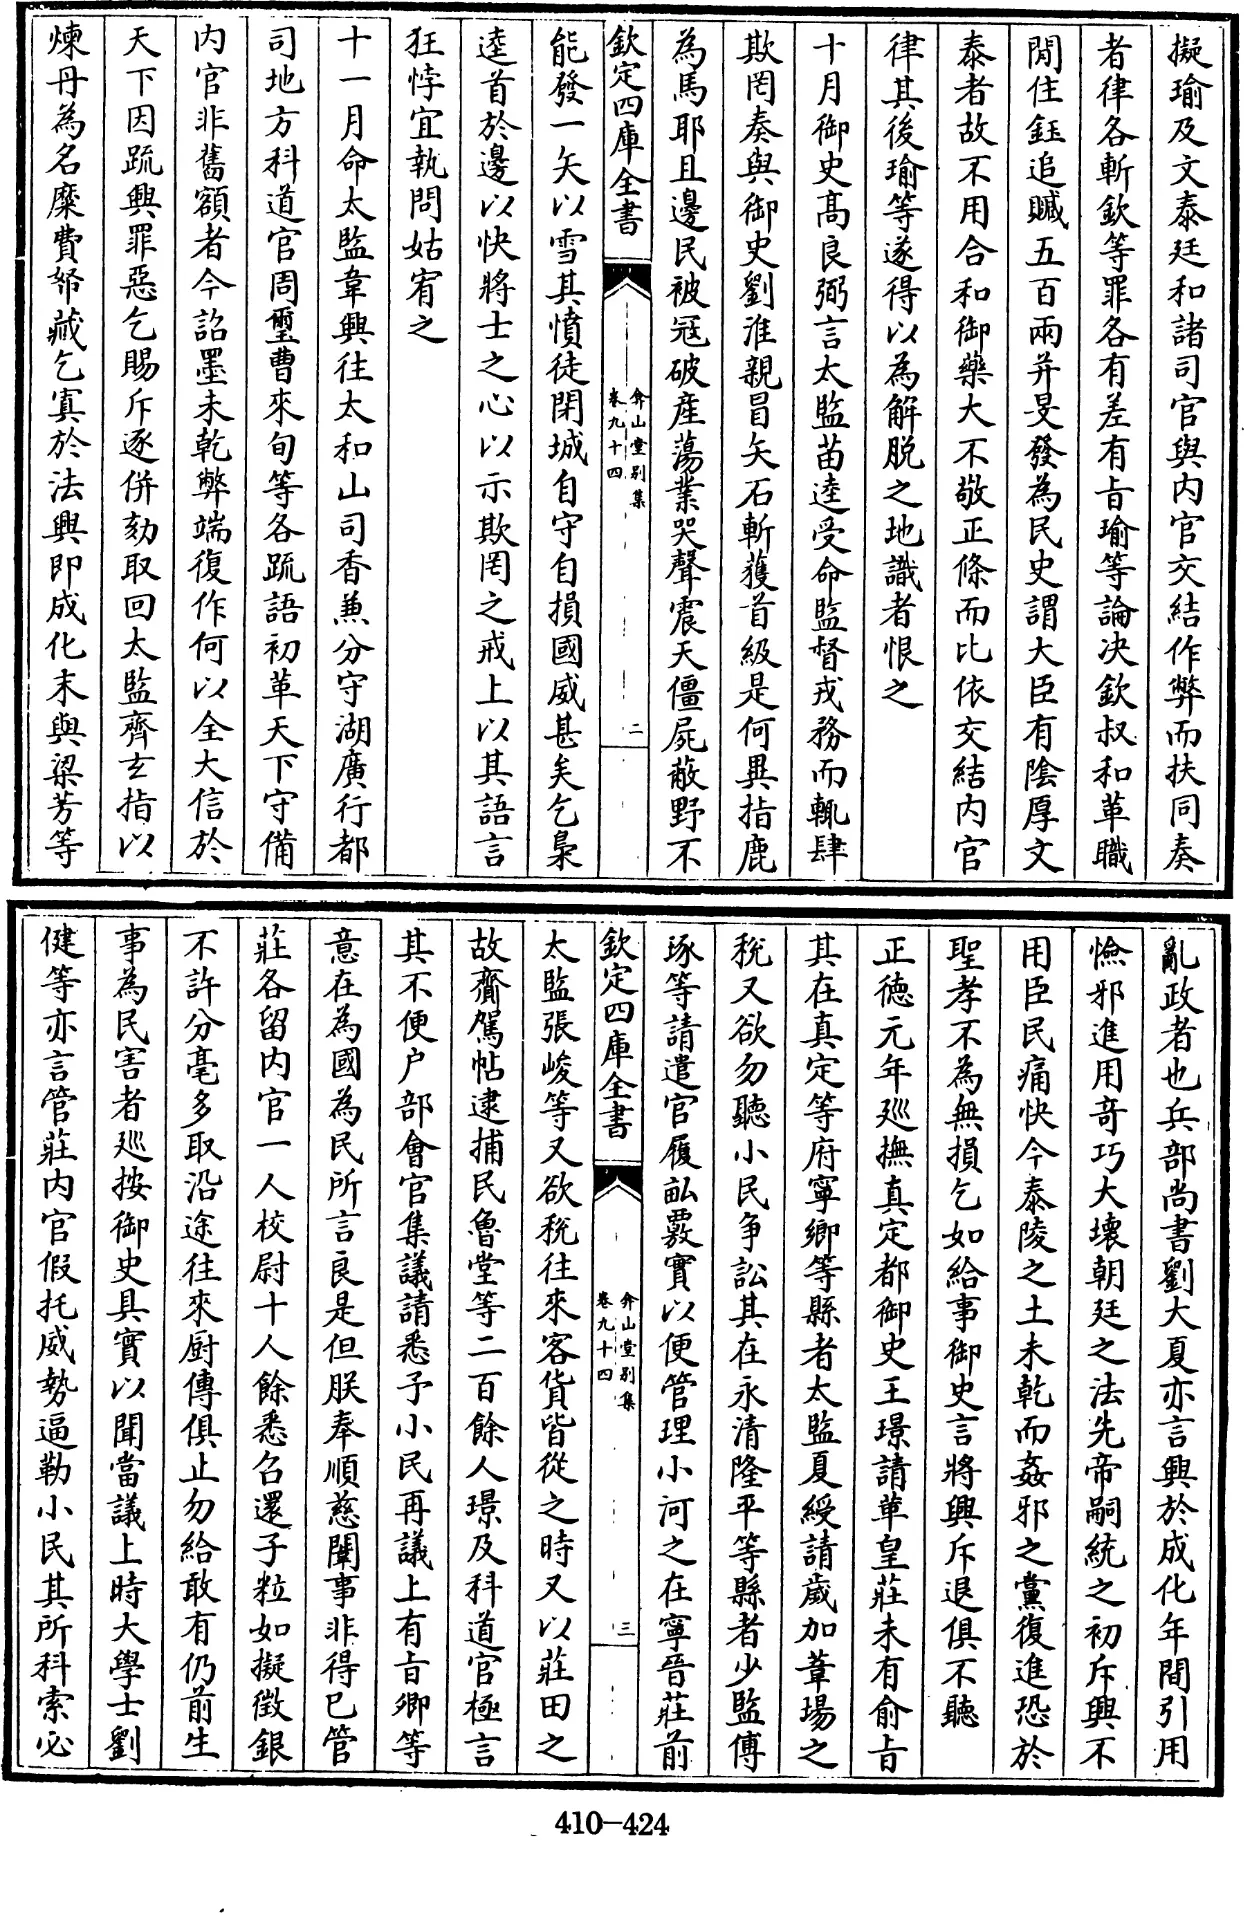 擬瑜及文泰廷和諸司官與内官交結作弊而扶同奏
者律各斬欽等罪各有差有㫖瑜等論决欽叔和革職
閒住鈺追贓五百兩并旻發為民史謂大臣有隂厚文
泰者故不用合和御藥大不敬正條而比依交結内官
律其後瑜等遂得以為解脱之地識者恨之
十月御史高良弼言太監苗逵受命監督戎務而輒肆
欺罔奏與御史劉淮親冒矢石斬獲首級是何異指鹿
為馬耶且邊民被冦破産蕩業哭聲震天僵屍蔽野不
欽定四庫全書
弇山堂别集
卷九十四
二
能發一矢以雪其憤徒閉城自守自損國威甚矣乞梟
逵首於邊以快將士之心以示欺罔之戒上以其語言
狂悖宜執問姑宥之
十一月命太監韋興往太和山司香兼分守湖廣行都
司地方科道官周璽曹來旬等各疏語初革天下守備
内官非舊額者今詔墨未乾弊端復作何以全大信於
天下因疏興罪惡乞賜斥逐併劾取回太監齊玄指以
煉丹為名糜費帑藏乞寘於法興即成化末與梁芳等
亂政者也兵部尚書劉大夏亦言興於成化年間引用
憸邪進用竒巧大壊朝廷之法先帝嗣統之初斥興不
用臣民痛快今泰陵之土未乾而姦邪之黨復進恐於
聖孝不為無損乞如給事御史言將興斥退俱不聽
正德元年巡撫真定都御史王璟請革皇莊未有俞㫖
其在真定等府寧鄉等縣者太監夏綬請歲加葦場之
税又欲勿聽小民争訟其在永清隆平等縣者少監傅
琢等請遣官履畝覈實以便管理小河之在寧晉莊前
欽定四庫全書
弇山堂别集
卷九十四
三
太監張峻等又欲税往來客貨皆從之時又以莊田之
故齎駕帖逮捕民魯堂等二百餘人璟及科道官極言
其不便户部會官集議請悉予小民再議上有㫖卿等
意在為國為民所言良是但朕奉順慈闈事非得已管
莊各留内官一人校尉十人餘悉召還子粒如擬徵銀
不許分毫多取沿途往來厨傳俱止勿給敢有仍前生
事為民害者巡按御史具實以聞當議上時大學士劉
健等亦言管莊内官假托威勢逼勒小民其所科索必
410-424